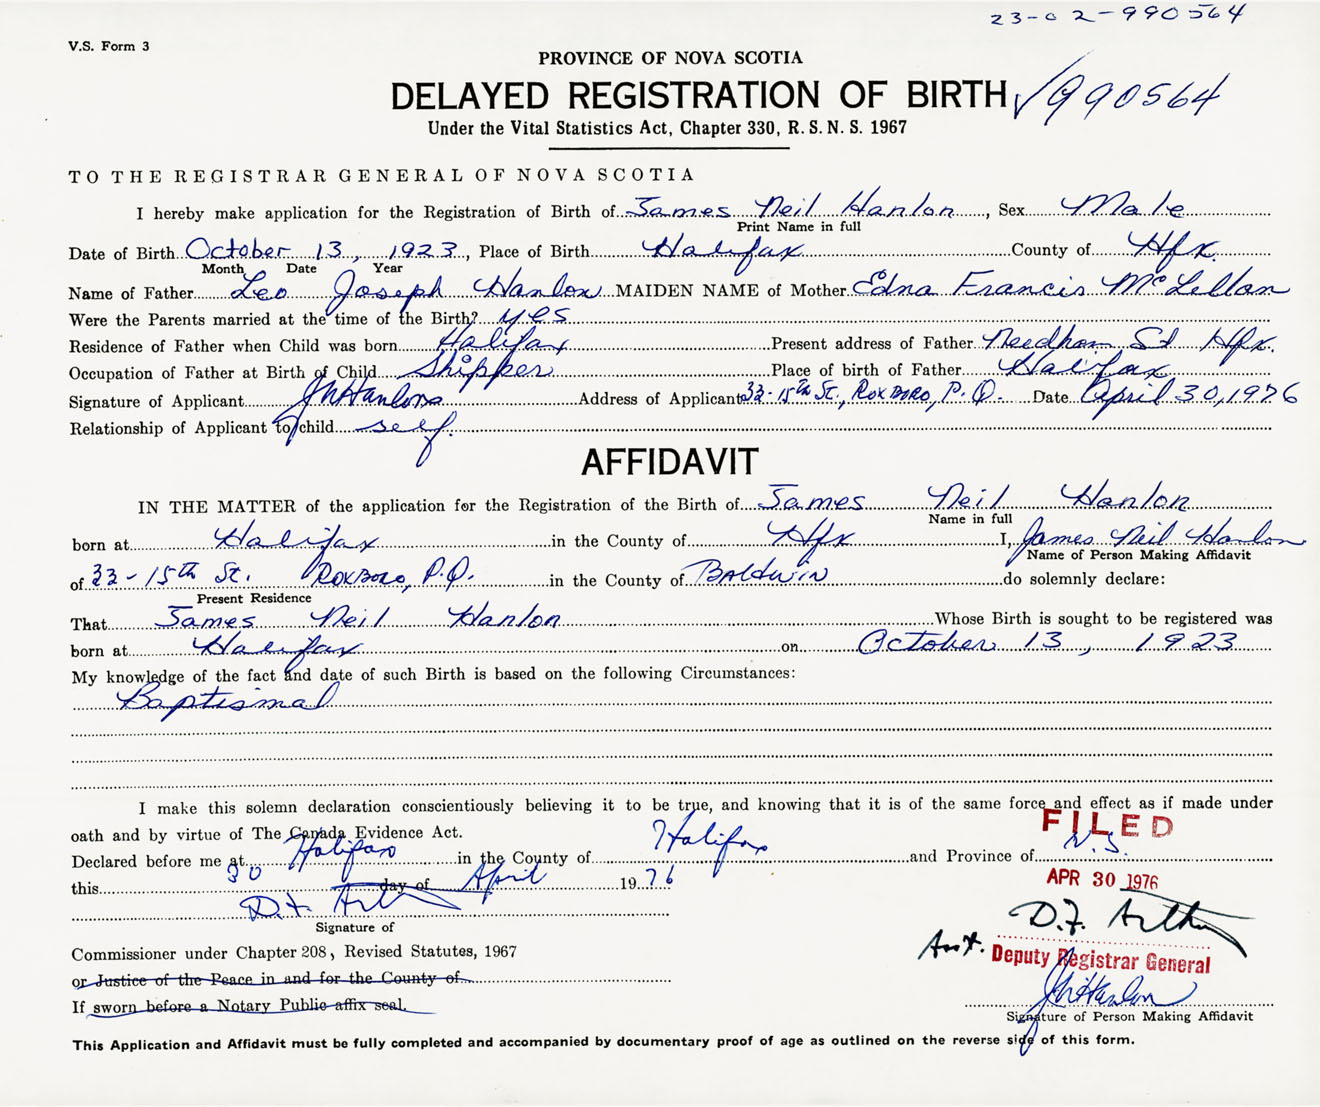 23-02-990564
V.S. Form 3
PROVINCE OF NOVA SCOTIA
DELAYED REGISTRATION OF BIRTH √990564
Under the Vital Statistics Act, Chapter 330, R. S. N. S. 1967
TO THE REGISTRAR GENERAL OF NOVA SCOTIA
I hereby make application for the Registration of Birth of James Neil Hanlon, Sex Male
Print Name in full
Date of Birth October 13, 1923, Place of Birth Halifax County of Hfx.
Month Date Year
Name of Father Leo Joseph Hanlon MAIDEN NAME of Mother Edna Francis McLellan
Were the Parents married at the time of the Birth? yes
Residence of Father when Child was born Halifax Present address of Father Needham St Hfx.
Occupation of Father at Birth of Child Shipper Place of birth of Father Halifax
Signature of Applicant JNHanlon Address of Applicant 33-15th St., Roxboro, P.Q. Date April 30, 1976
Relationship of Applicant to child self.
AFFIDAVIT
IN THE MATTER of the application for the Registration of the Birth of James Neil Hanlon
Name in full
born at Halifax in the County of Hfx I, James Neil Hanlon
Name of Person Making Affidavit
of 33-15th St. Roxboro, P.Q. in the County of Baldwin do solemnly declare:
Present Residence
That James Neil Hanlon Whose Birth is sought to be registered was
born at Halifax on October 13, 1923
My knowledge of the fact and date of such Birth is based on the following Circumstances:
Baptismal
I make this solemn declaration conscientiously believing it to be true, and knowing that it is of the same force and effect as if made under
oath and by virtue of The Canada Evidence Act.
FILED
Declared before me at Halifax in the County of Halifax and Province of N.S.
this 30 day of April 1976
APR 30 1976
D.F. Arthur
D.F. Arthur
Signature of
Asst. Deputy Registrar General
Commissioner under Chapter 208, Revised Statutes, 1967
or Justice of the Peace in and for the County of
JNHanlon
If sworn before a Notary Public affix seal.
Signature of Person Making Affidavit
This Application and Affidavit must be fully completed and accompanied by documentary proof of age as outlined on the reverse side of this form.